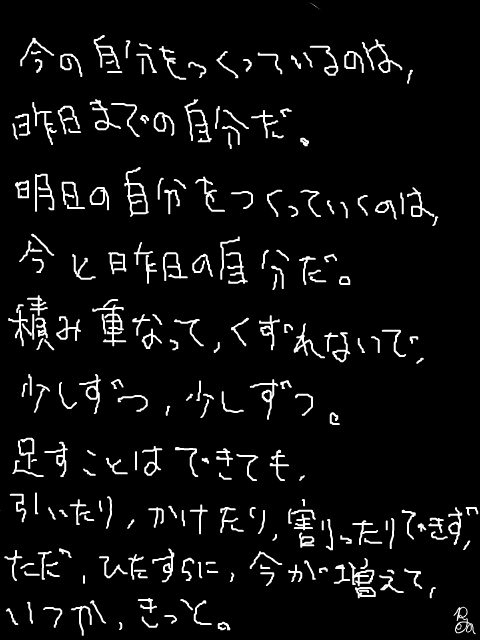 今の自分をつくっているのは,
昨日までの自分だ。
明日の自分をつくっていくのは,
今と昨日の自分だ。
積み重なって,くずれないで,
少しずつ,少しずつ。
足すことはできても,
引いたり,かけたり,割ったりできず,
ただ,ひたすらに,今が増えて,
いつか,きっと。